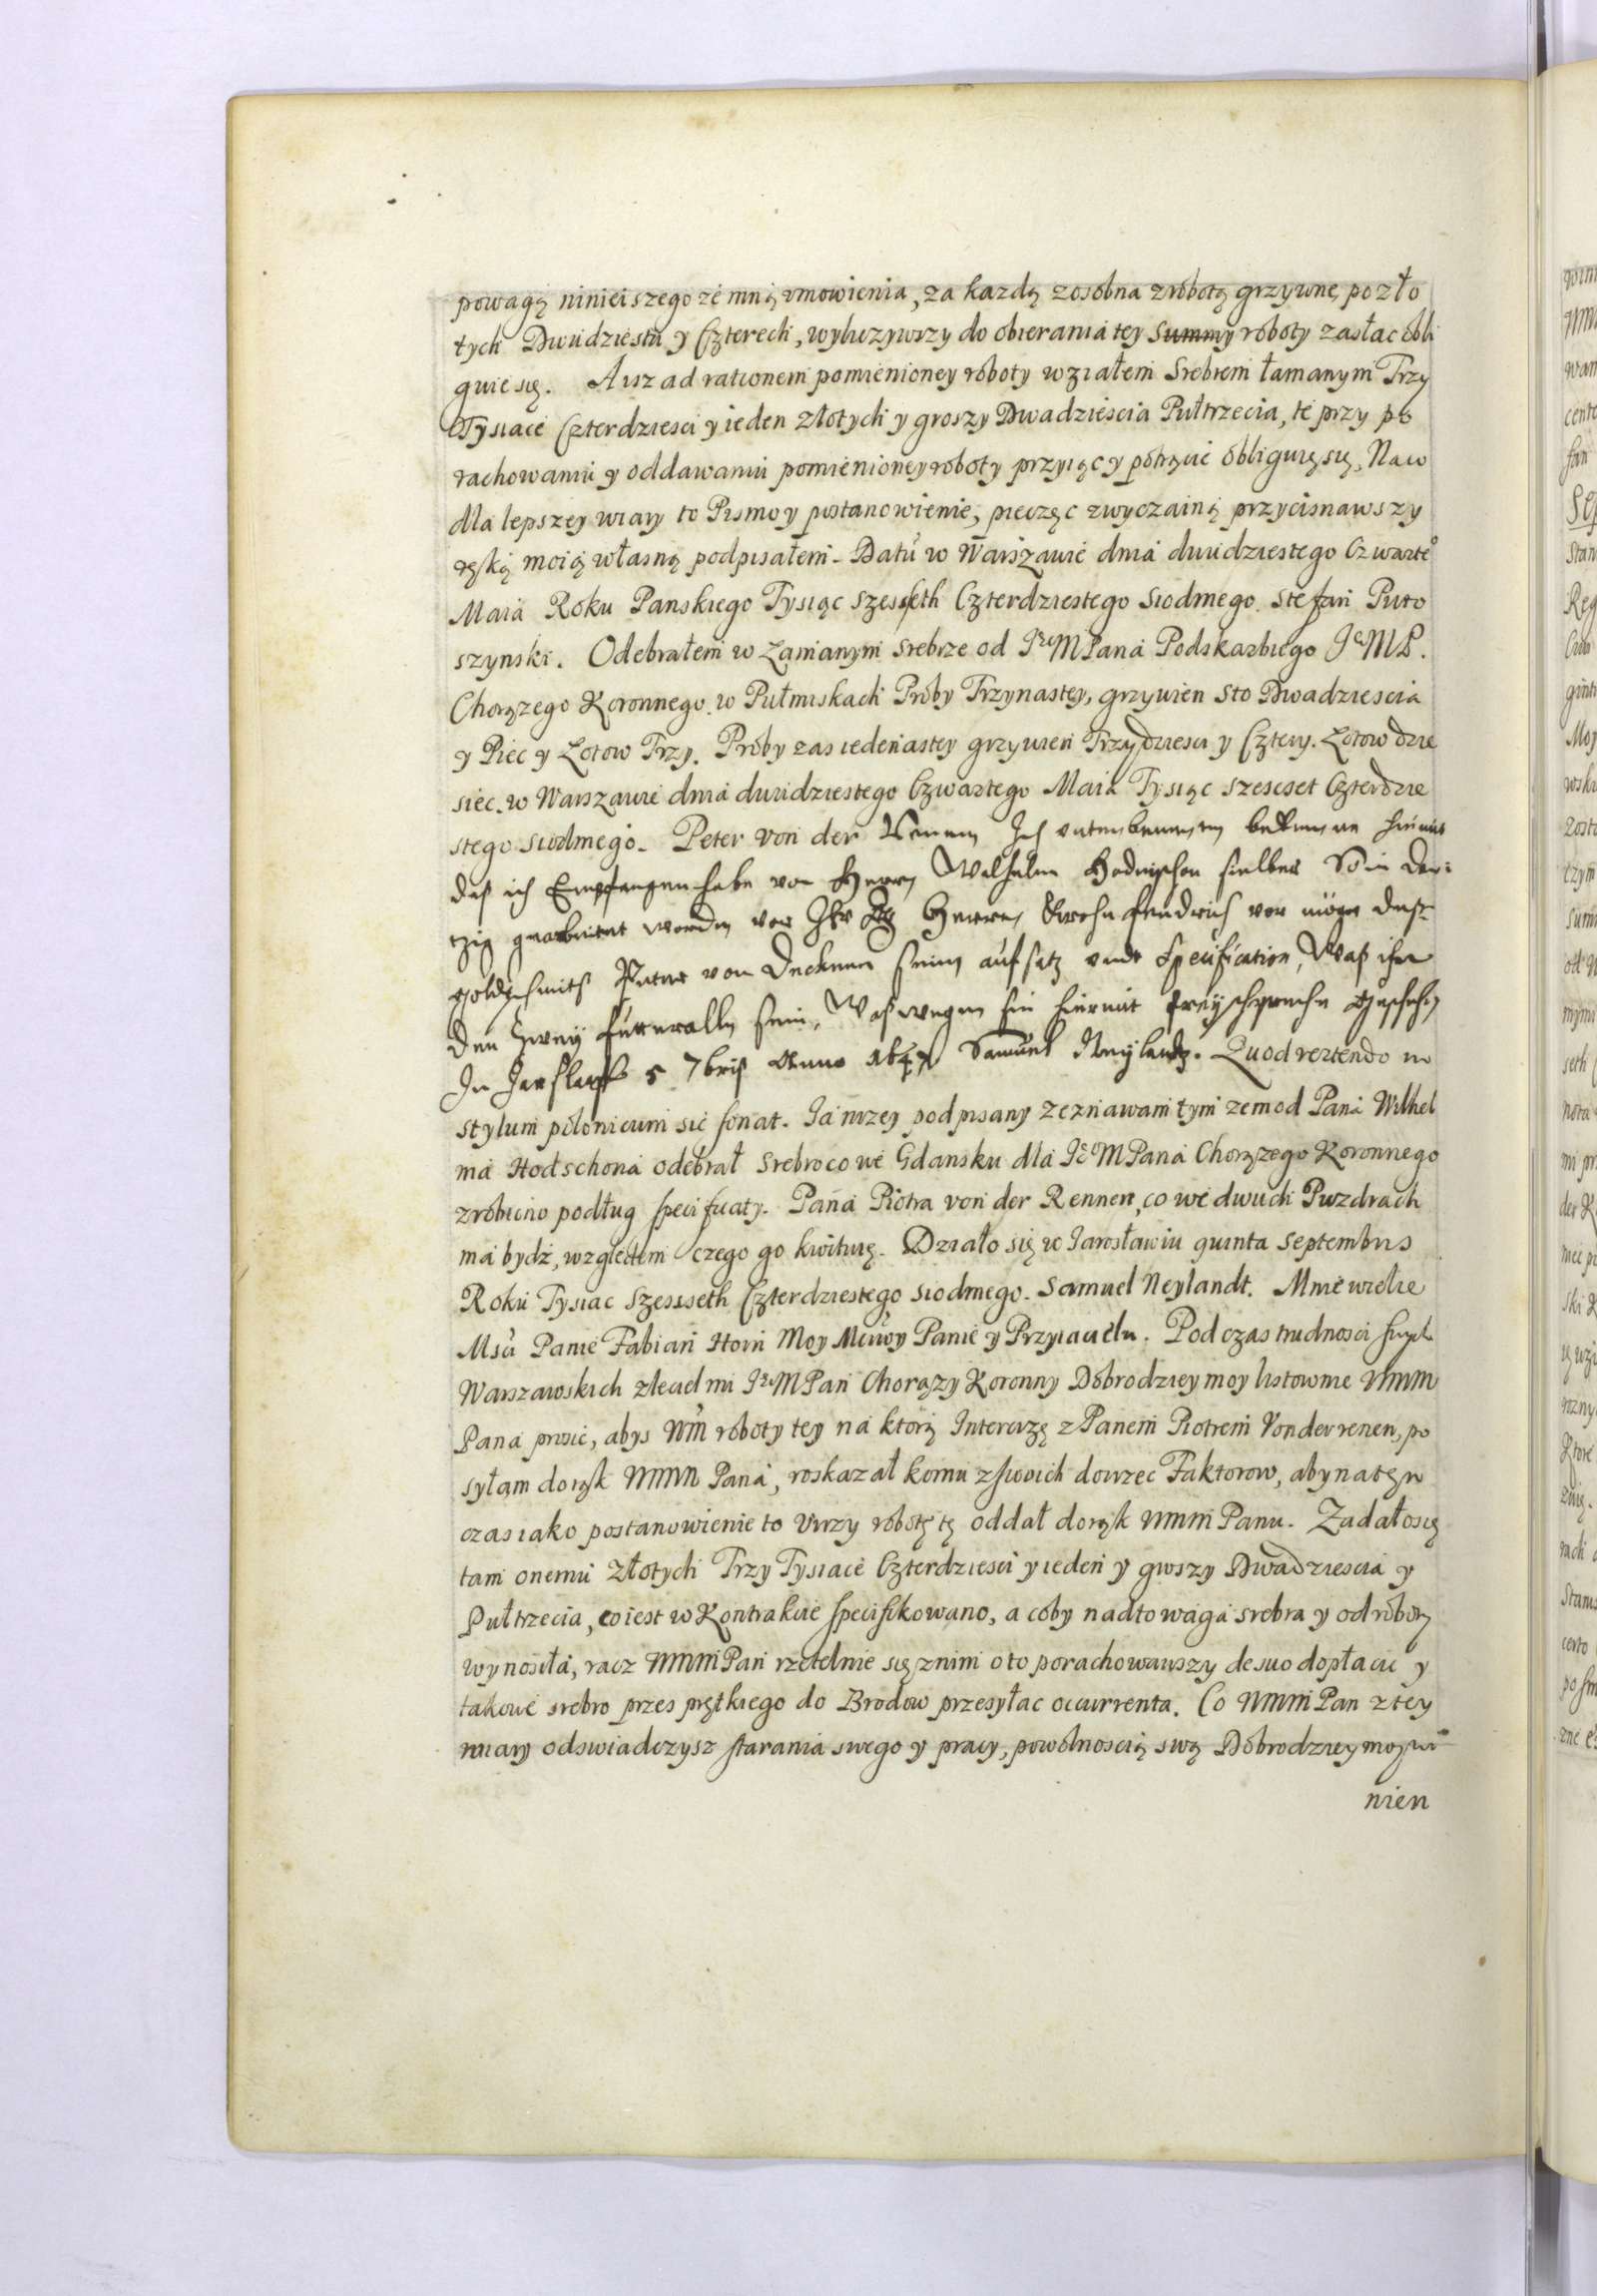 powagą ninieiszego ze mną vmowienia, za kazdą zosobna zrobotą grzywnę, pozło
tych Dwudziestu y Czterech, wyliczywszy do obierania tey Summy roboty zasłac obli
guie się. A isz ad rationem pomienioney roboty wziałem Srebrem łamanym Trzy
Tysiace Czterdziesci y ieden złotych y groszy Dwadziescia Pułtrzecia, te przy po
rachowaniu y oddawaniu pomienioney roboty przyiąc y potrącić obliguię się, Na co
dla lepszey wiary to Pismo y postanowienie, pieczęc zwyczainą przycisnawszy
ręką moią własną podpisałem. Datū w Warszawie dnia dwudziestego Czwarteº
Maia Roku Panskiego Tysiąc szesseth Czterdziestego Siodmego. Stefan Puto
szynski. Odebrałem w Łamanym srebrze od Jeº M Pana Podskarbiego Jº M P.
Chorązego Koronnego w Pułmiskach Proby Trzynastey, grzywien Sto Dwadziescia
y Piec y Łotow Trzy. Proby zas iedenastey grzywien Trzydziesci y Cztery. Łotow dzie
siec. w Warszawie dnia dwudziestego Czwartego Maia Tysiąc szescset Czterdzie
stego siodmego. Peter von der Rennen Ich untenbenenten bekenne hiemit
daß ich Empfangen habe von Herrn Wilhelm Hodnischon silber So in Dan:
tzig gearbeitet worden vor Ihr Herren
goldschmits Peter von seinem aufsatz undt Specification, Waß ihn
den Zweÿ futterall sein, Waßwegen hiermit freÿ spreche Geschehen
In Jarslaff 5 7bris Anno 1647 Samuel Neylandt. Quod vertendo in
stylum polonicum sic sonat. Ia nizey podpisany zeznawam tym zem od Pana Wilhel
ma Hodschona odebrał srebro co we Gdansku dla Jeº M Pana Chorązego Koronnego
zrobiono podług specificaty. Pana Piotra von der Rennen, co we dwuch Puzdrach
ma bydz, względem czego go kwituię. Działo się w Jarosławiu quinta Septembris
Roku Tysiac szessseth Czterdziestego siodmego. Samuel Neylandt. Mnie wielce
Msci Panie Fabian Horn Moy Mciwy Panie y Przyiacielu. Podczas trudnosci
Warszawskich zlecieł mi Jeº M Pan Chorązy Koronny Dobrodziey moy listownie WMM
Pana prosic, abys WM roboty tey na którą Intercizę z Panem Piotrem Vonder renen, po
syłam do rąk WMM Pana, roskazał komu z swoich dozrzec Faktorow, aby na ten
czas iako postanowienie to Vczy robotę tę oddał do rąk WMM Panu. Zadało się
tam onemu Złotych Trzy Tysiace Czterdziesci y ieden y groszy Dwadziescia y
Pułtrzecia, co iest w Kontrakcie specifikowano, a coby nadto waga srebra y od roboty
wynosiła, racz WMM Pan rzetelnie się z nim o to porachowawszy de suo dopłacic y
takowe srebro przes prętkiego do Brodow przesyłac occurrenta. Co WMM Pan z tey
miary odswiadczysz starania swego y pracy, powolnoscią swą Dobrodziey moy
nien